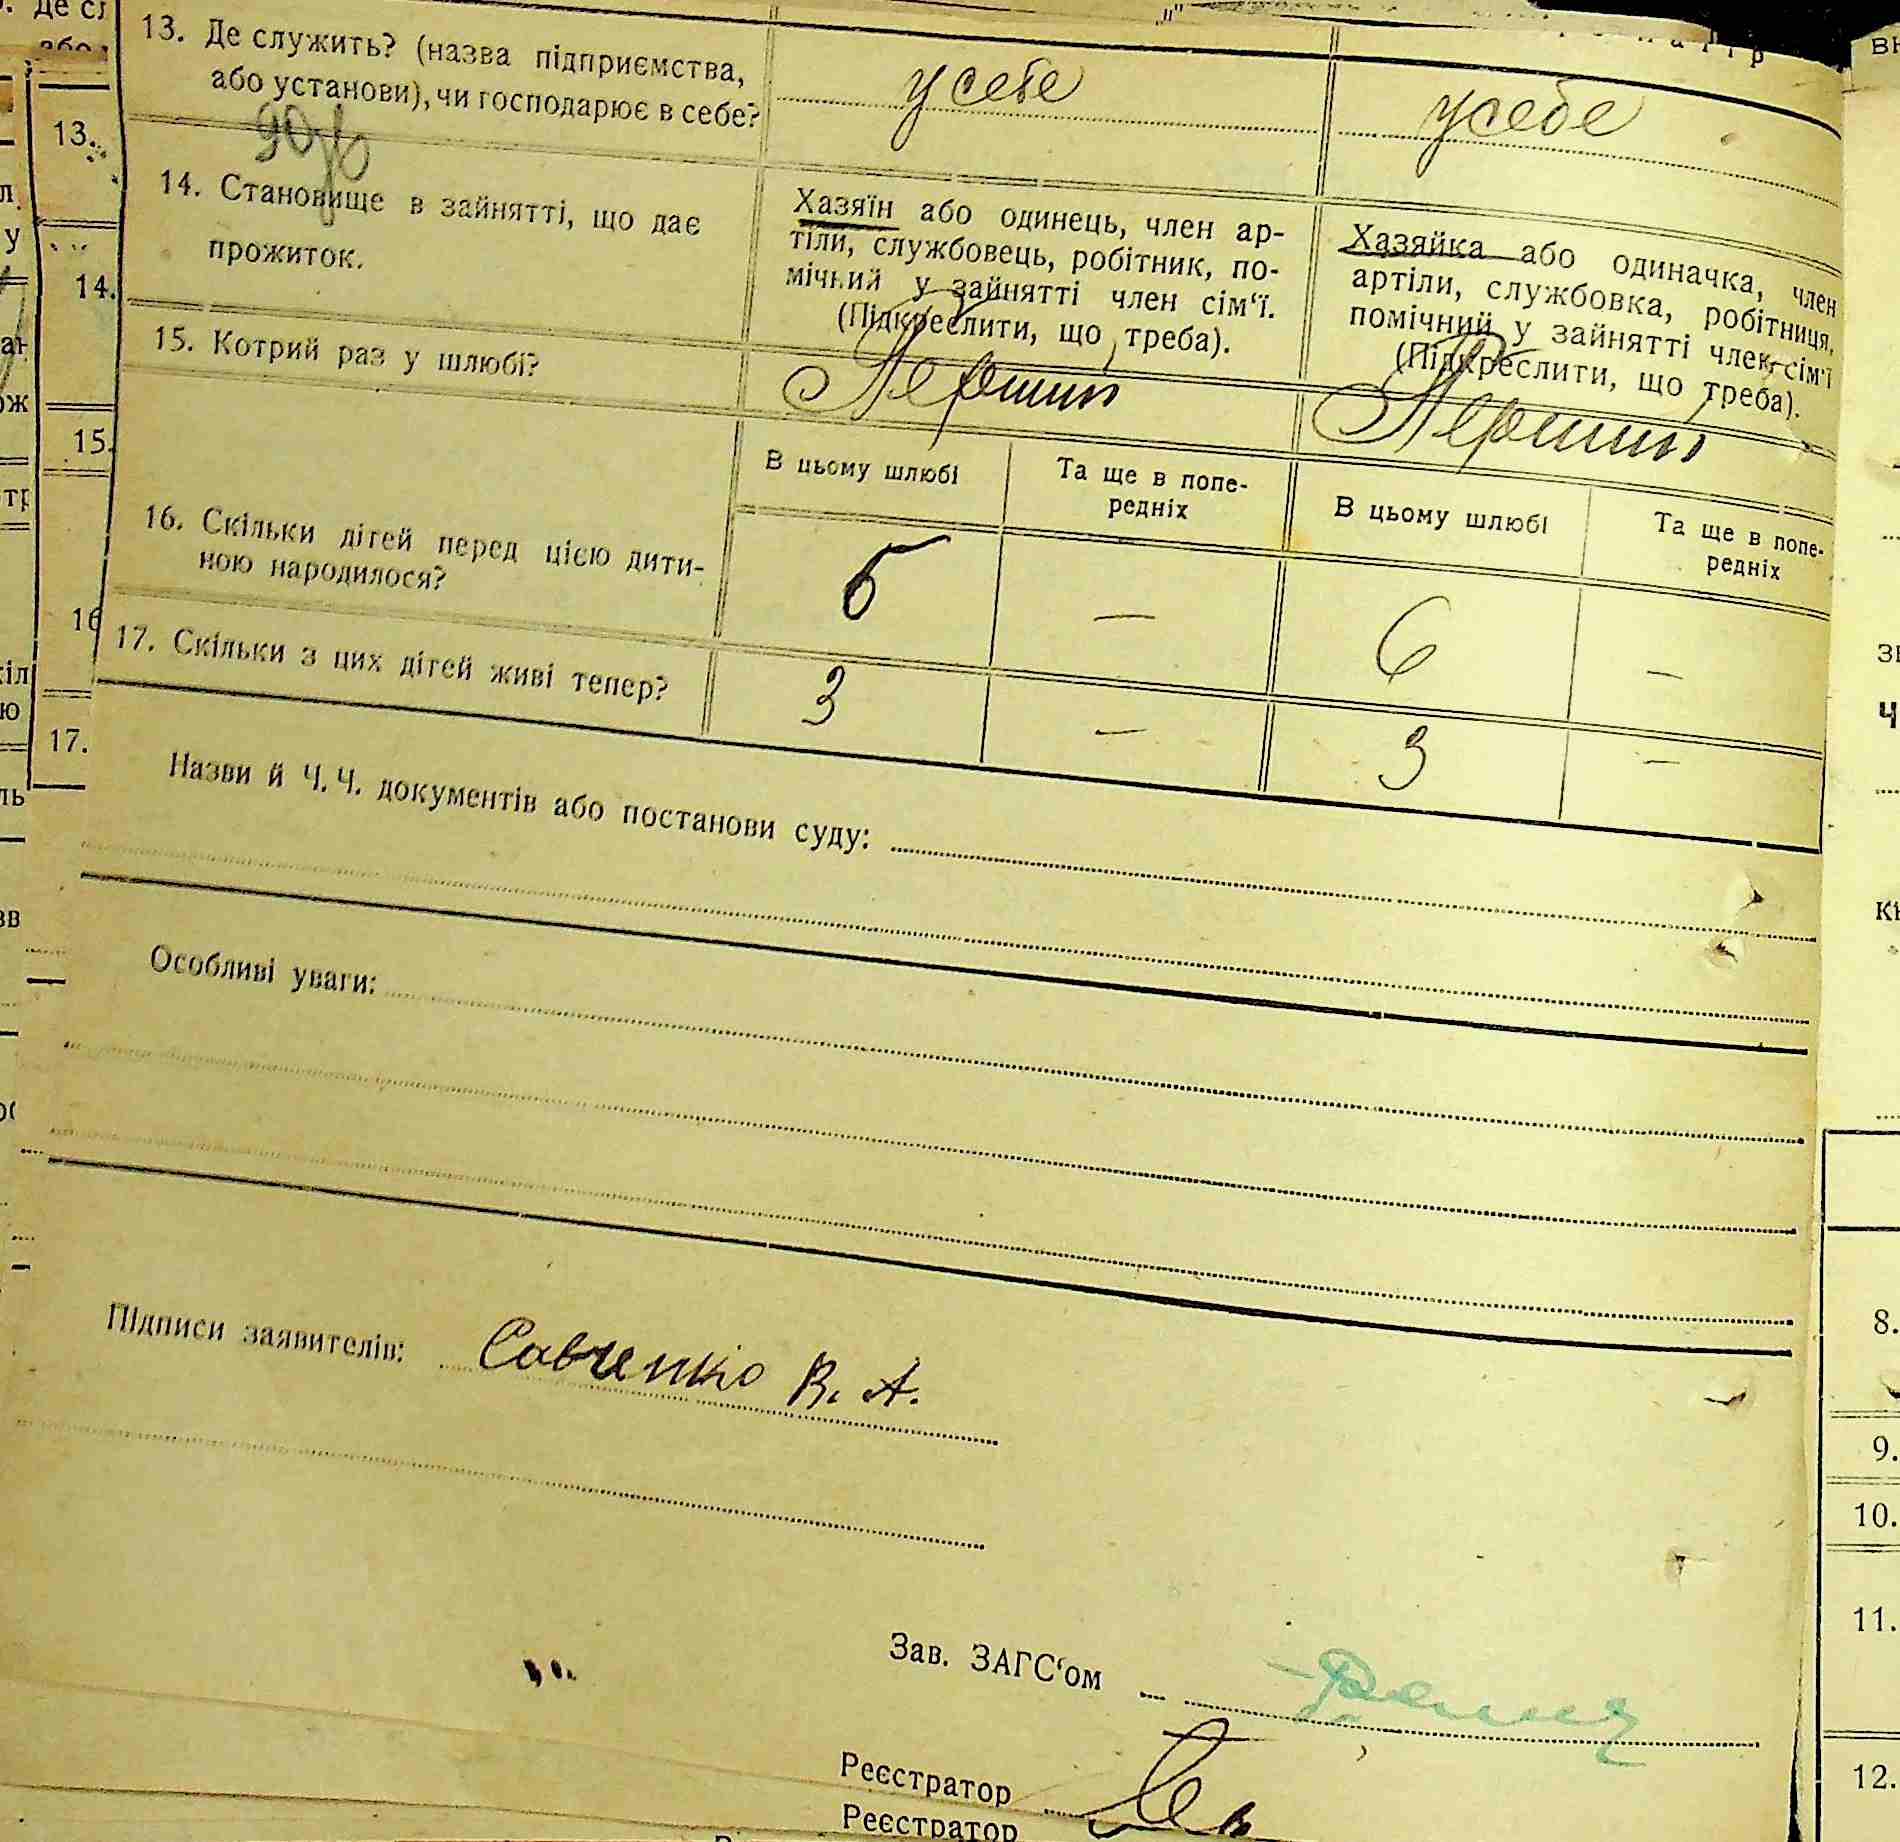 13. Де служить? (назва підприємства,
або установи), чи господарює в себе?
у себе
у себе
14. Становище в зайнятті, що дає
прожиток.
Хазяїн або одинець, член ар-
тіли, службовець, робітник, по-
мічний у зайнятті член сім‘ї.
(Підкреслити, що треба).
Хазяйка або одиначка, член
артіли, службовка, робітниця,
помічний у зайнятті член сім‘ї
(Підкреслити, що треба).
15. Котрий раз у шлюбі?
Перший
Перший
16. Скільки дітей перед цією дити-
ною народилося?
В цьому шлюбі
Та ще в попе-
редніх
В цьому шлюбі
Та ще в попе-
редніх
6
—
6
—
17. Скільки з цих дітей живі тепер?
3
—
3
—
Назви й Ч. Ч. документів або постанови суду:
Особливі уваги:
Підписи заявителів: Савченко В. А.
Зав. ЗАГС‘ом
Реєстратор
Реєстратор
13.
14.
15.
16
17.
8.
9.
10.
11.
12.